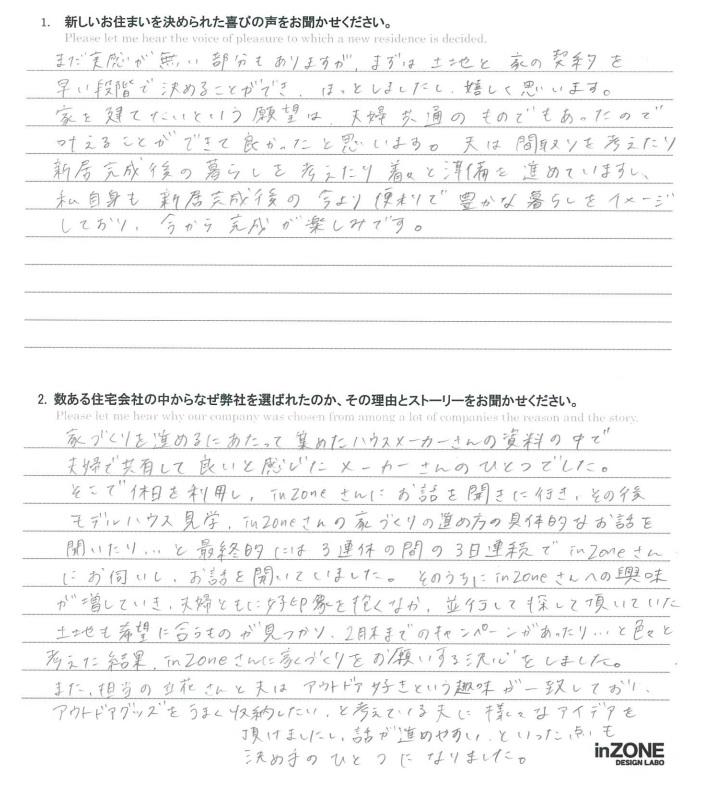 1. 新しいお住まいを決められた喜びの声をお聞かせください。
Please let me hear the voice of pleasure to which a new residence is decided.
まだ実感が無い部分もありますが、まずは土地と家の契約を
早い段階で決めることができ、ほっとしましたし、嬉しく思います。
家を建てたいという願望は、夫婦共通のものでもあったので
叶えることができて良かったと思います。夫は間取りを考えたり
新居完成後の暮らしを考えたり着々と準備を進めていますし、
私自身も新居完成後の今より便利で豊かな暮らしをイメージ
しており、今から完成が楽しみです。
2. 数ある住宅会社の中からなぜ弊社を選ばれたのか、その理由とストーリーをお聞かせください。
Please let me hear why our company was chosen from among a lot of companies the reason and the story.
家づくりを進めるにあたって集めたハウスメーカーさんの資料の中で
夫婦で共有して良いと感じたメーカーさんのひとつでした。
そこで休日を利用し、inzoneさんにお話を聞きに行き、その後
モデルハウス見学、inzoneさんの家づくりの進め方の具体的なお話を
聞いたり…と最終的には3連休の間の3日連続でinzoneさん
にお伺いし、お話を聞いていました。そのうちにinzoneさんへの興味
が増していき、夫婦ともに好印象を抱くなか、並行して探して頂いていた
土地も希望に合うものが見つかり、2月末までのキャンペーンがあったり…と色々と
考えた結果、inzoneさんに家づくりをお願いする決心をしました。
また、担当の立花さんと夫はアウトドア好きという趣味が一致しており、
アウトドアグッズをうまく収納したい、と考えている夫に様々なアイデアを
頂けましたし、話が進めやすい、といった点も
決め手のひとつになりました。
inZONE
DESIGN LABO